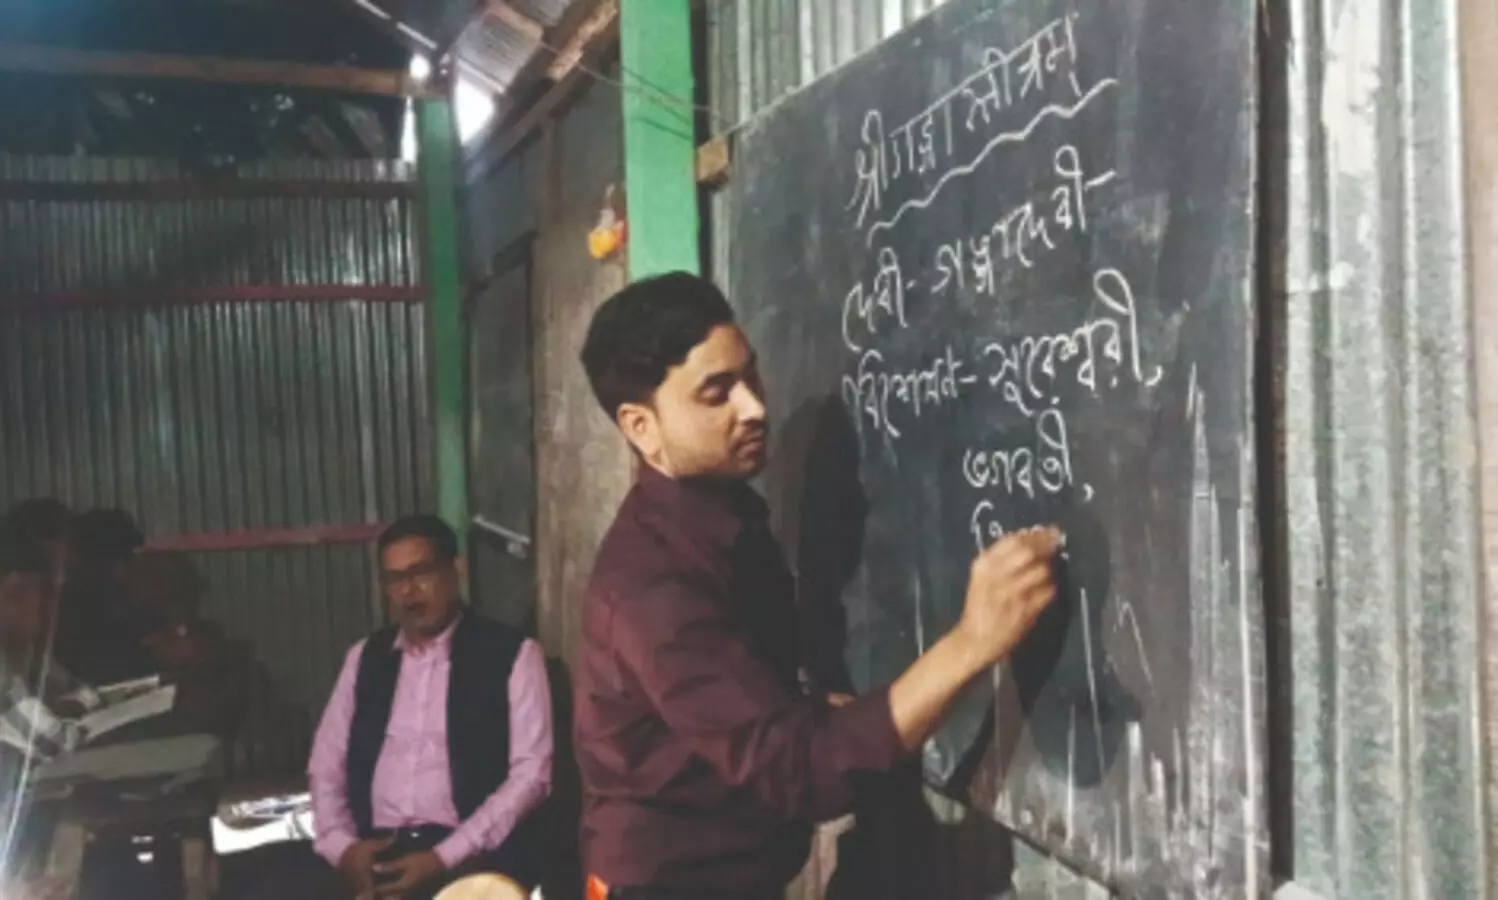 শ্রীগঙ্গাস্তোত্রম্
দেবী- গঙ্গাদেবী-
বিশেষণ- সুরেশ্বরী,
ভগবতী,